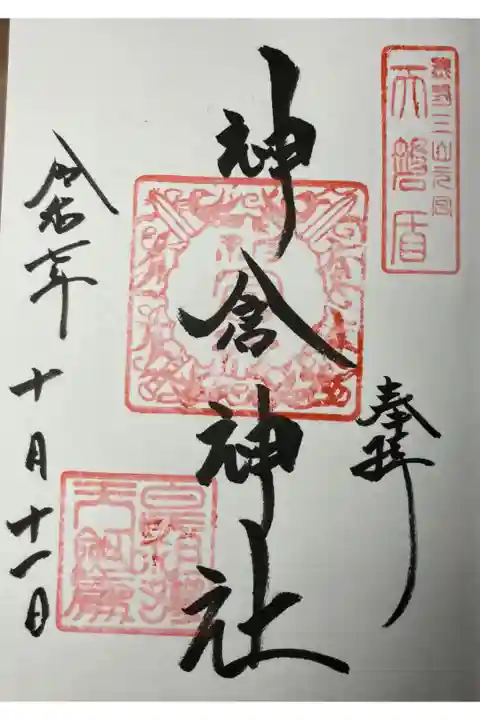 熊野三山元宮
天磐盾
奉拝
神倉神社
令和七年十月十一日